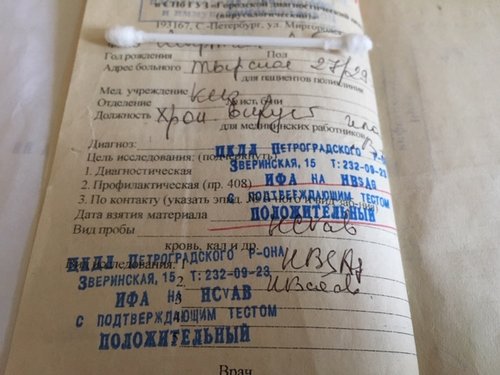 СПбГУЗ «Городской диагностический
(вирусологический)»
193167, С-Петербург, ул. Миргородс
Год рождения Пол
Адрес больного Тверская 27/29
для пациентов поликлиник
Мед. учреждение КЦД
Отделение № ист. б-ни
Должность Хрон вирус
для медицинских работников
Диагноз:
Цель исследования: (подчеркнуть)
1. Диагностическая
2. Профилактическая (пр. 408)
3. По контакту (указать эпид.
ЦКДЛ ПЕТРОГРАДСКОГО Р-ОНА
ЗВЕРИНСКАЯ, 15 Т: 232-09-23
ИФА НА HBSAG
С ПОДТВЕРЖДАЮЩИМ ТЕСТОМ
ПОЛОЖИТЕЛЬНЫЙ
Дата взятия материала
Вид пробы HCVAB
кровь, кал и др.
исследования: 1 HBSAg
2 HBcAB
3
4
ПЕТРОГРАДСКОГО Р-ОНА
ЗВЕРИНСКАЯ, 15 Т: 232-09-23
ИФА НА HCVAB
С ПОДТВЕРЖДАЮЩИМ ТЕСТОМ
ПОЛОЖИТЕЛЬНЫЙ
Врач